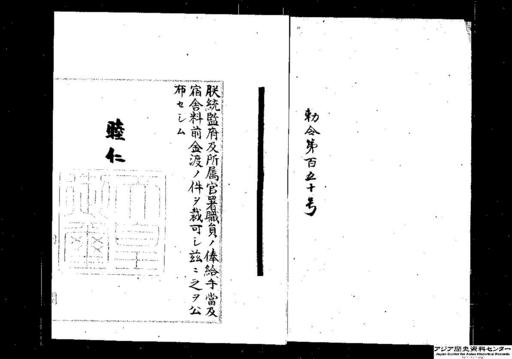 勅令第百五十号
朕統監府及所属官署職員ノ俸給手當及
宿舎料前金渡ノ件ヲ裁可シ茲ニ之ヲ公
布セシム
睦仁
アジア歴史資料センター
Japan Center for Asian Historical Records